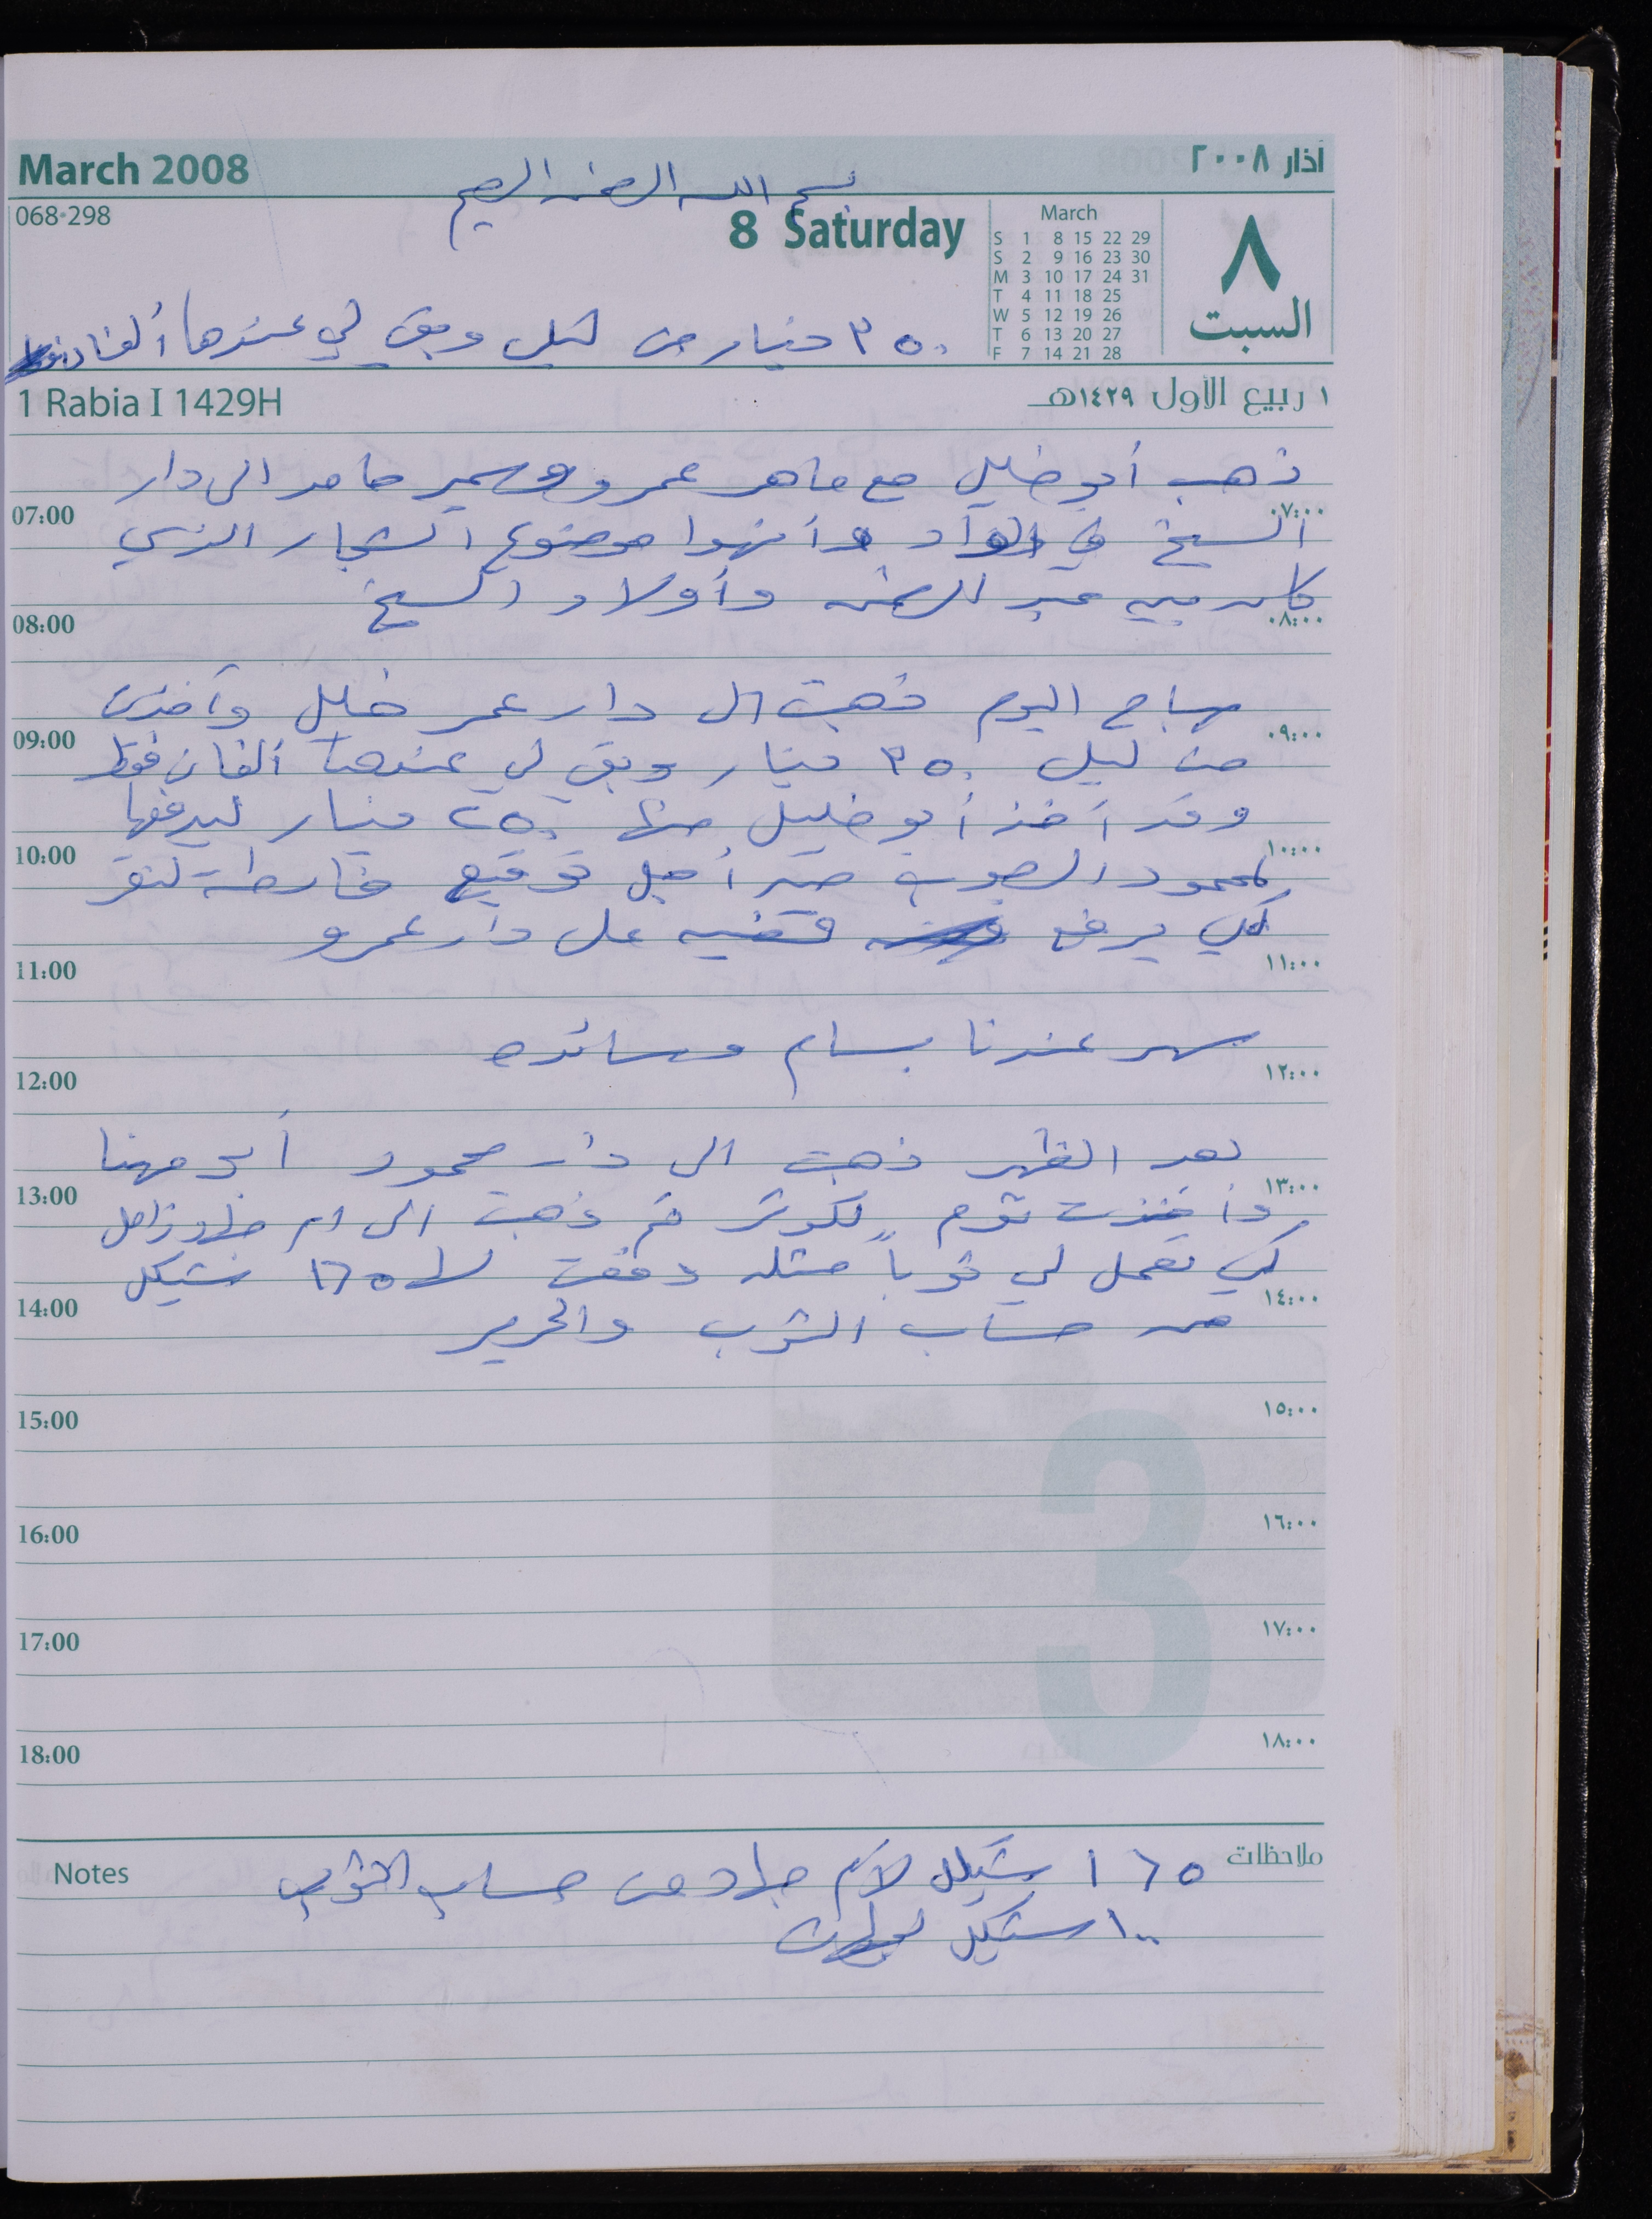 March 2008
آذار ٢٠٠٨
بسم الله الرحمن الرحيم
068-298
8 Saturday
March
S 1 8 15 22 29
S 2 9 16 23 30
M 3 10 17 24 31
T 4 11 18 25
W 5 12 19 26
T 6 13 20 27
F 7 14 21 28
٨
السبت
٣٥٠ دينار من ليلى وبقي لي عندها ألفان
1 Rabia I 1429H
١ ربيع الأول ١٤٢٩هـ
ذهب أبو خليل مع ماهر عمرو وسمير حامد الى دار
07:00 ٠٧:٠٠
الشيخ في الواد وأنهوا موضوع الشجار الذي
كان بين عبد الرحمن وأولاد الشيخ
08:00 ٠٨:٠٠
صباح اليوم ذهبت الى دار عمر خليل وأخذت
09:00 ٠٩:٠٠
من ليلى ٣٥٠ دينار وبقي لي عندها ألفان فقط
وقد أخذ أبو خليل منها ٢٥٠ دينار ليدفعها
10:00 ١٠:٠٠
لمحمود أجل توقيع خارطة
لكي يرفع قضيه على دار عمرو
11:00 ١١:٠٠
سهر عندنا بسام وسائده
12:00 ١٢:٠٠
بعد الظهر ذهبت الى دار محمود أبو مهنا
13:00 ١٣:٠٠
وأخذت ثوم لكوثر ثم ذهبت الى ام جلاد
كي تعمل لي ثوباً مثله دفعت لها ١٦٥ شيكل
14:00 ١٤:٠٠
من حساب الثوب والحرير
15:00 ١٥:٠٠
16:00 ١٦:٠٠
17:00 ١٧:٠٠
18:00 ١٨:٠٠
3
Notes
ملاحظات
١٦٥ شيكل لأم جلاد من حساب الثوب
١٠٠ شيكل